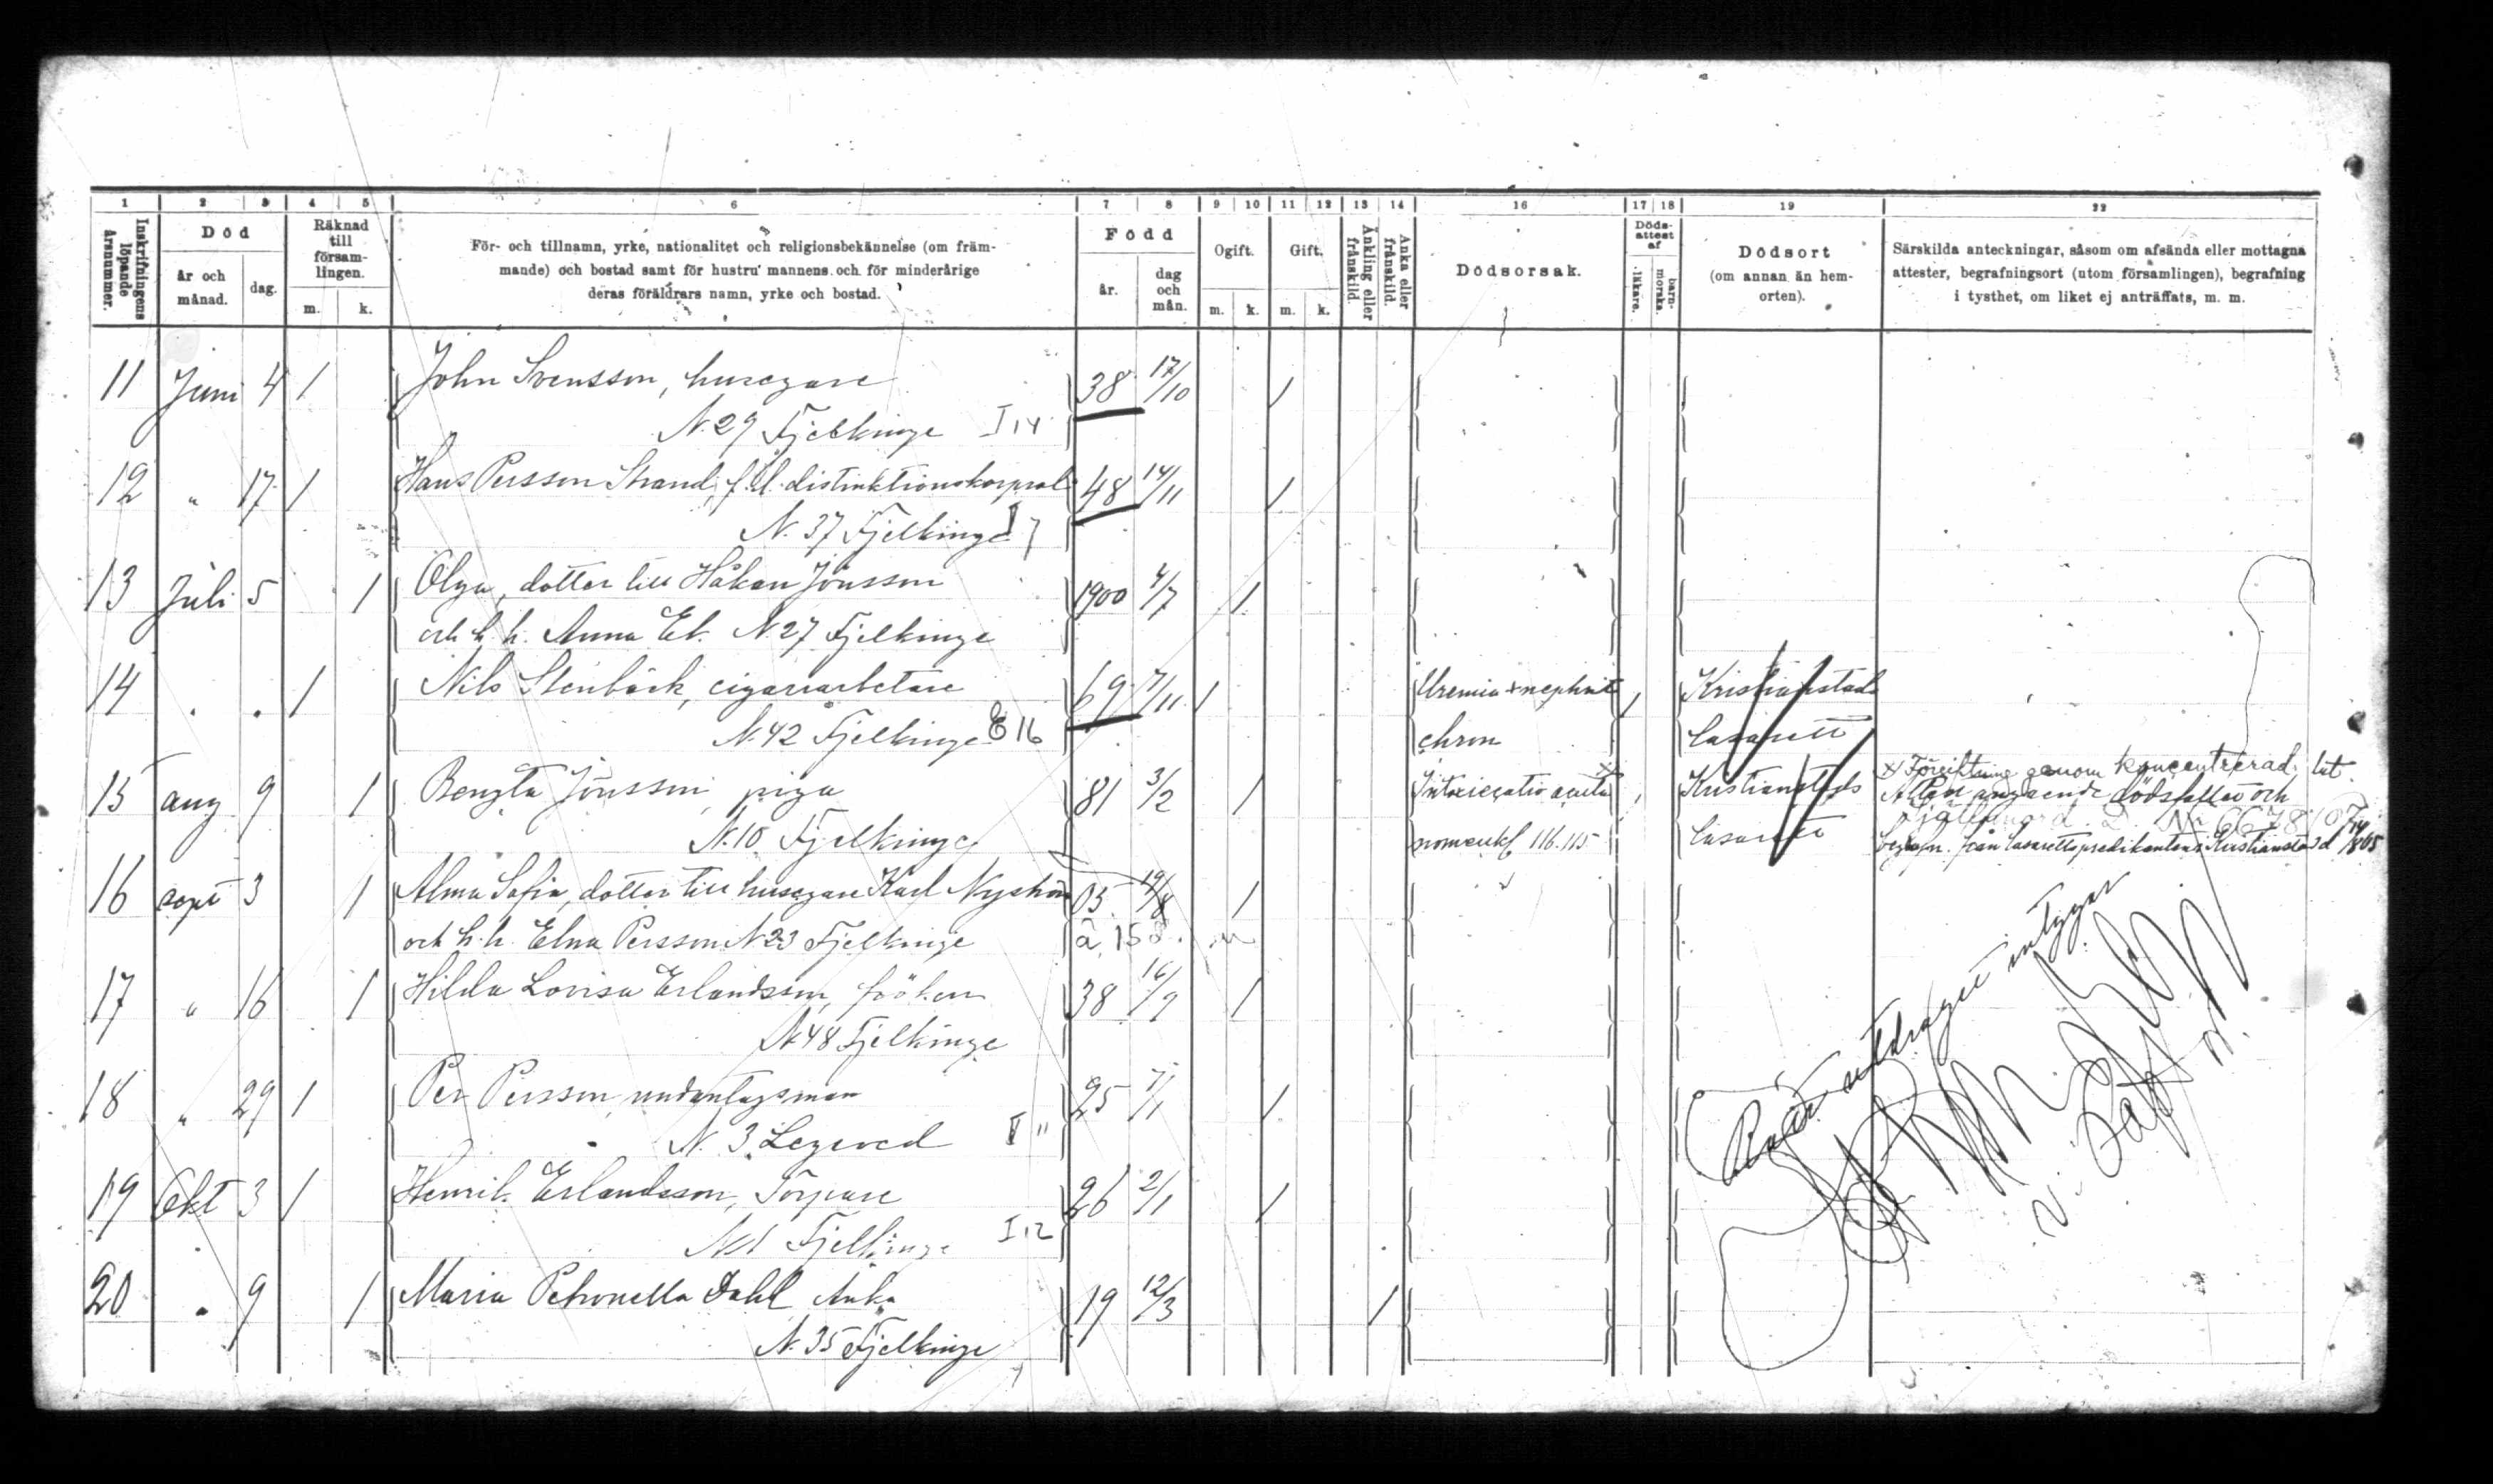 1 2 3 4 5 6 7 8 9 10 11 12 13 14 16 17 18 19 22
Inskrifningens löpande årsnummer.
Död
år och månad.
dag.
Räknad till försam-lingen.
m. k.
För- och tillnamn, yrke, nationalitet och religionsbekännelse (om främ-
mande) och bostad samt för hustru mannens och för minderårige
deras föräldrars namn, yrke och bostad.
Född
år.
dag och mån.
Ogift.
m. k.
Gift.
m. k.
Änkling eller frånskild.
Änka eller frånskild.
Dödsorsak.
Döds-attest af
läkare.
barn-morska.
Dödsort
(om annan än hem-
orten).
Särskilda anteckningar, såsom om afsända eller mottagna
attester, begrafningsort (utom församlingen), begrafning
i tysthet, om liket ej anträffats, m. m.
11 Juni 4 1 John Svensson, husegare 38 17/10 1
N. 29 Fjelkinge I 14
12 " 17 1 Hans Persson Strand, f.d. distinktionskorpral 48 14/11 1
N. 37 Fjelkinge I 7
13 Juli 5 1 Olga, dotter till Håkan Jönsson 1900 4/7 1
och h. h. Anna Ek. N 27 Fjelkinge
14 . . 1 Nils Stenbäck, cigarrarbetare 69 7/11 1 Uremia + nephrit 1 Kristianstads
N. 42 Fjelkinge E 16 chron lasarett
15 aug 9 1 Bengta Jönsson, piga 81 3/2 1 Intoxicatio acuta x 1 Kristianstads x) Förgiftning genom koncentrerad lut.
N. 10 Fjelkinge nomenkl 116.115 lasarett Attest angående dödsfallet och
begrafn. från lasarettspredikanten i Kristianstad
16 sept 3 1 Alma Sofia, dotter till husegare Karl Nyström 05 19/8 1
och h. h. Elna Persson N 23 Fjelkinge à 15 d.
17 " 16 1 Hilda Lovisa Erlandsson, fröken 38 16/9 1
N 48 Fjelkinge
18 " 29 1 Per Persson, undantagsman 25 7/1 1
N. 3 Legeved I 11
19 Okt 3 1 Henrik Erlandsson, Torpare 26 2/1 1
N 1 Fjelkinge I 12
20 . 9 1 Maria Petronella Dahl Änka 19 12/3 1
N. 35 Fjelkinge
utdraget intygar